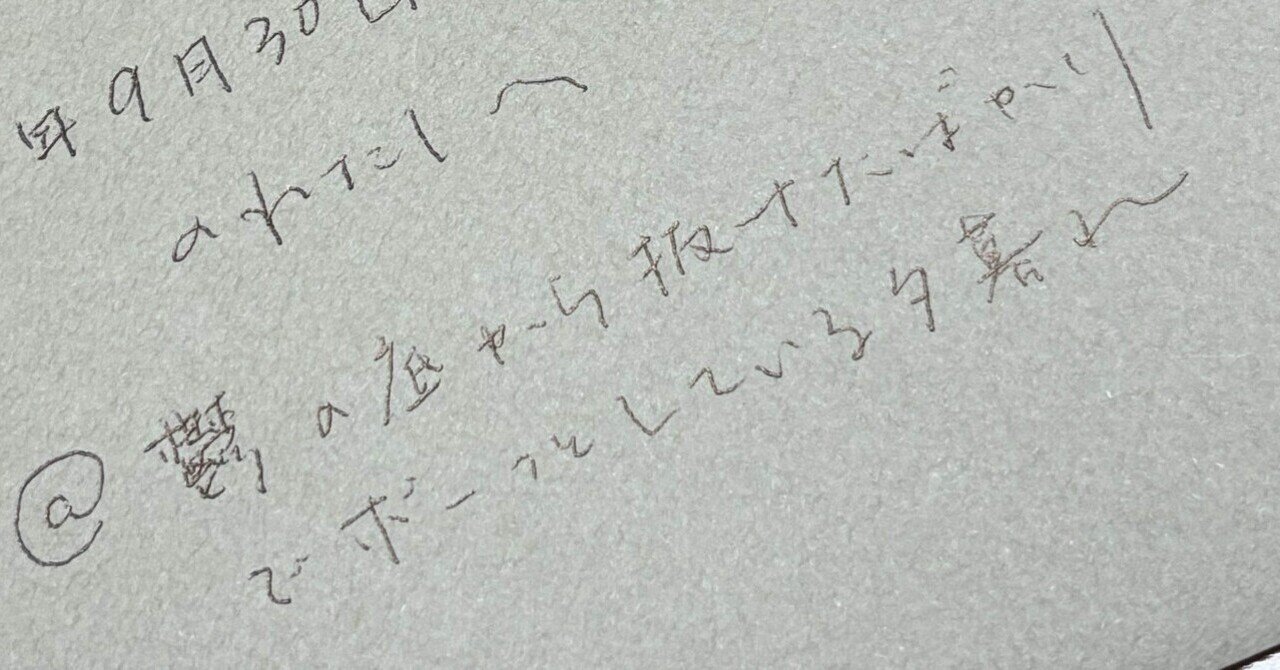 年9月30日
のわたしへ
@鬱の底から抜けたばかり
でボーッとしている夕暮れ